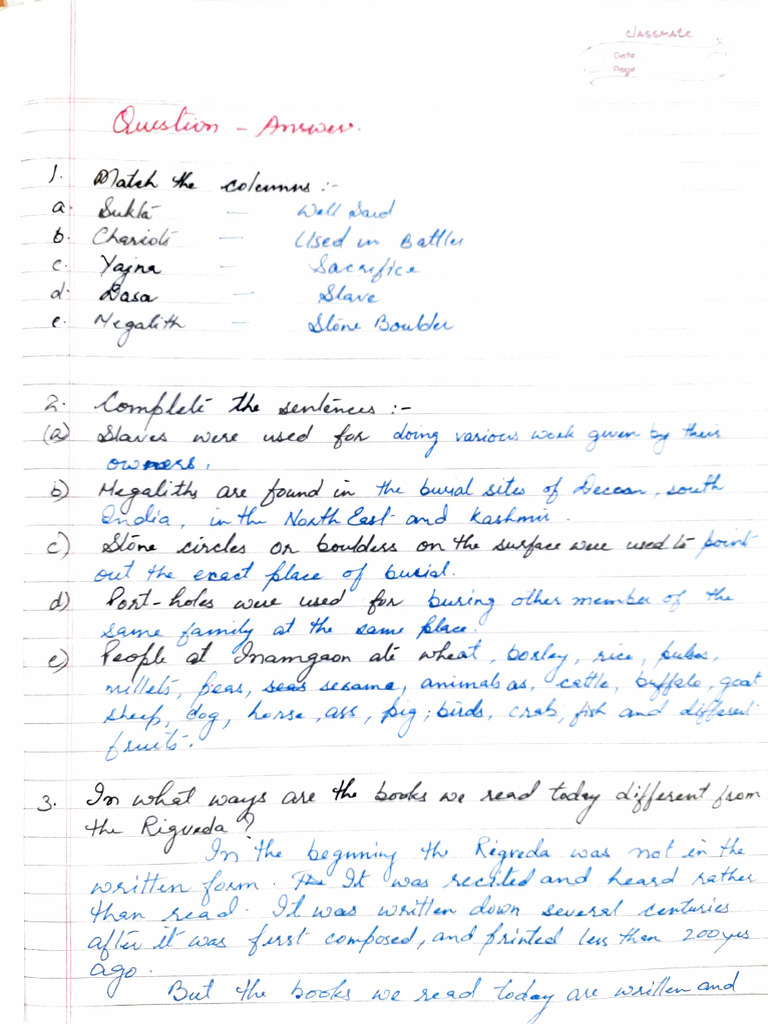 classmate
Date
Page
Question - Answer.
1. Match the columns :-
a. Sukta — Well Said
b. Chariots — Used in Battles
c. Yajna — Sacrifice
d. Dasa — Slave
e. Megalith — Stone Boulder
2. Complete the sentences :-
(a) Slaves were used for doing various work given by their
owners.
b) Megaliths are found in the burial sites of Deccan, south
India, in the North East and Kashmir.
c) Stone circles or boulders on the surface were used to point
out the exact place of burial.
d) Port-holes were used for buring other member of the
same family at the same place.
e) People at Inamgaon ate wheat, barley, rice, pulses,
millets, peas, seas sesame, animals as, cattle, buffalo, goat
sheep, dog, horse, ass, pig; birds, crab, fish and different
fruits.
3. In what ways are the books we read today different from
the Rigveda?
In the beginning the Rigveda was not in the
written form. The It was recited and heard rather
than read. It was written down several centuries
after it was first composed, and printed less than 200 yrs
ago.
But the books we read today are written and